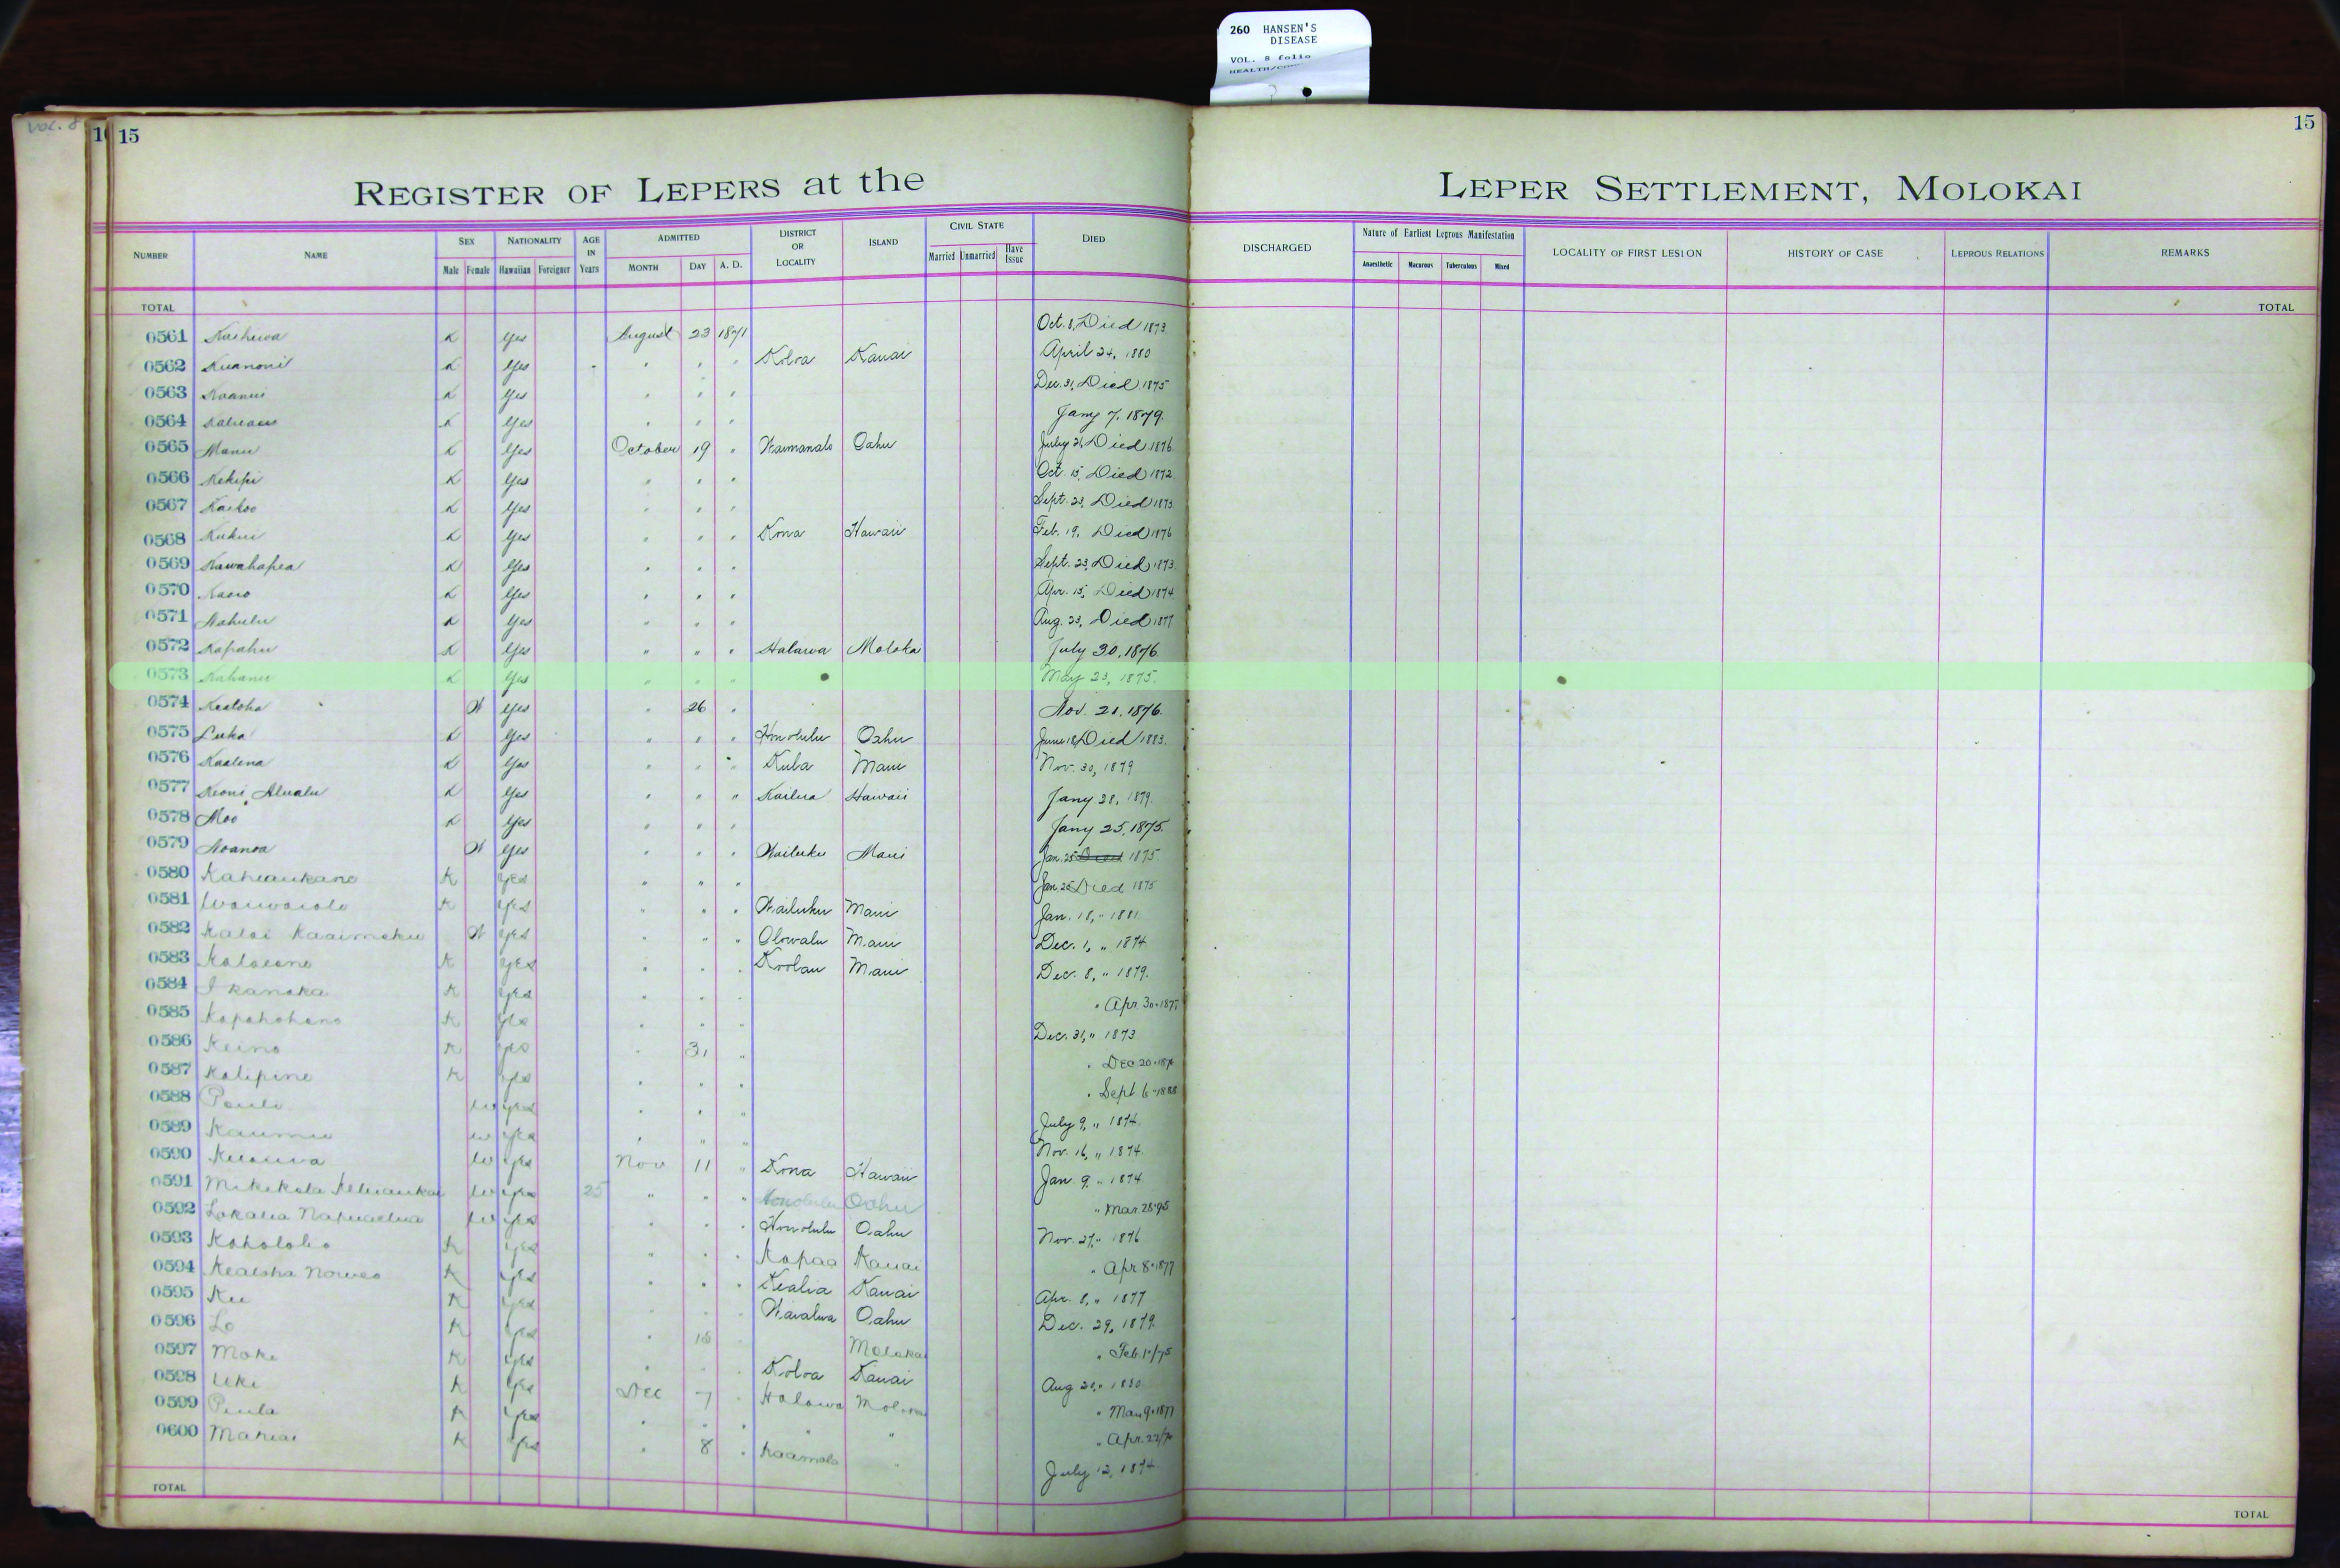 260 HANSEN'S
DISEASE
VOL. 8 folio
VOL. 8
15
15
REGISTER OF LEPERS at the LEPER SETTLEMENT, MOLOKAI
NUMBER NAME SEX Male Female NATIONALITY Hawaiian Foreigner AGE IN Years ADMITTED MONTH DAY A. D. DISTRICT OR LOCALITY ISLAND CIVIL STATE Married Unmarried Have Issue DIED DISCHARGED Nature of Earliest Leprous Manifestation Anaesthetic Macurous Tuberculous Mixed LOCALITY OF FIRST LESION HISTORY OF CASE LEPROUS RELATIONS REMARKS
TOTAL TOTAL
0561 K Yes August 23 1871 Oct. 8, Died 1873.
0562 K Yes " " " Koloa Kauai April 24, 1880
0563 K Yes " " " Dec. 31, Died 1875
0564 K Yes " " " Jany 7, 1879.
0565 Manu K Yes October 19 " Waimanalo Oahu July Died 1876.
0566 Kekipi K Yes " " " Oct. 15, Died 1872.
0567 Kaikoo K Yes " " " Sept. 23, Died 1873.
0568 Kukui K Yes " " " Kona Hawaii Feb. 19, Died 1876
0569 Kawahapea K Yes " " " Sept. 23, Died 1873.
0570 K Yes " " " Apr. 15, Died 1874.
0571 Nahulu K Yes " " " Aug. 23, Died 1877
0572 Kapahu K Yes " " " Halawa Moloka July 30, 1876.
0573 Kahanu K Yes " " " May 23, 1875.
0574 Kealoha W Yes " 26 " Nov. 21, 1876.
0575 Luka K Yes " " " Honolulu Oahu June 18, Died 1883.
0576 Kaalena K Yes " " " Kula Maui Nov. 30, 1879
0577 Keoni K Yes " " " Kailua Hawaii Jany 28, 1879.
0578 Moo K Yes " " " Jany 25, 1875.
0579 Noanoa W Yes " " " Wailuku Maui Jan. 25 Died 1875
0580 Kaheaukano K Yes " " " Jan. 25 Died 1875
0581 K Yes " " " Wailuku Maui Jan. 18, " 1881.
0582 Kalai Kaaimoku W Yes " " " Olowalu Maui Dec. 1, " 1874
0583 K Yes " " " Koolau Maui Dec. 8, " 1879.
0584 I kanaka K Yes " " " " Apr 30-187
0585 Kapahohano K Yes " " " Dec. 31, " 1873
0586 Keino K Yes " 31 " " Dec 20-
0587 Kalipine K Yes " " " " Sept 6-1888
0588 Pauli W Yes " " " July 9, " 1874.
0589 Kaumu W Yes " " " Nov. 16, " 1874.
0590 W Yes Nov 11 " Kona Hawaii Jan 9, " 1874.
0591 Mikikala W Yes 25 " " " Honolulu Oahu " Mar. 28-95
0592 Lokalia W Yes " " " Honolulu Oahu Nov. 27, " 1876
0593 Koholoko K Yes " " " Kapaa Kauai " Apr 8-1877
0594 Kealoha K Yes " " " Kealia Kauai Apr. 8, " 1877
0595 Ku K Yes " " " Waialua Oahu Dec. 29, 1879.
0596 Lo K Yes " 18 " Molokai " Feb 1
0597 Moke K Yes " " " Koloa Kauai Aug
0598 Uki K Yes Dec 7 " Halawa " 1877
0599 Piula K Yes " " " " " " Apr. 22
0600 K Yes " 8 " Kaamola " July 12, 1874
TOTAL TOTAL